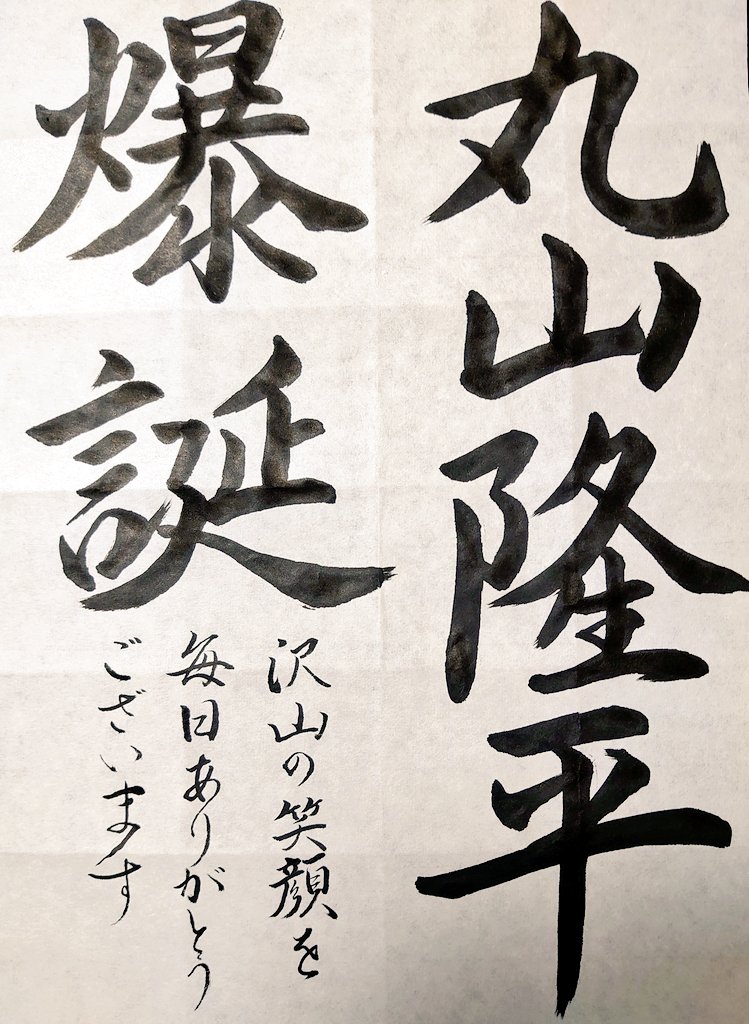 丸山隆平
爆誕
沢山の笑顔を
毎日ありがとう
ございます